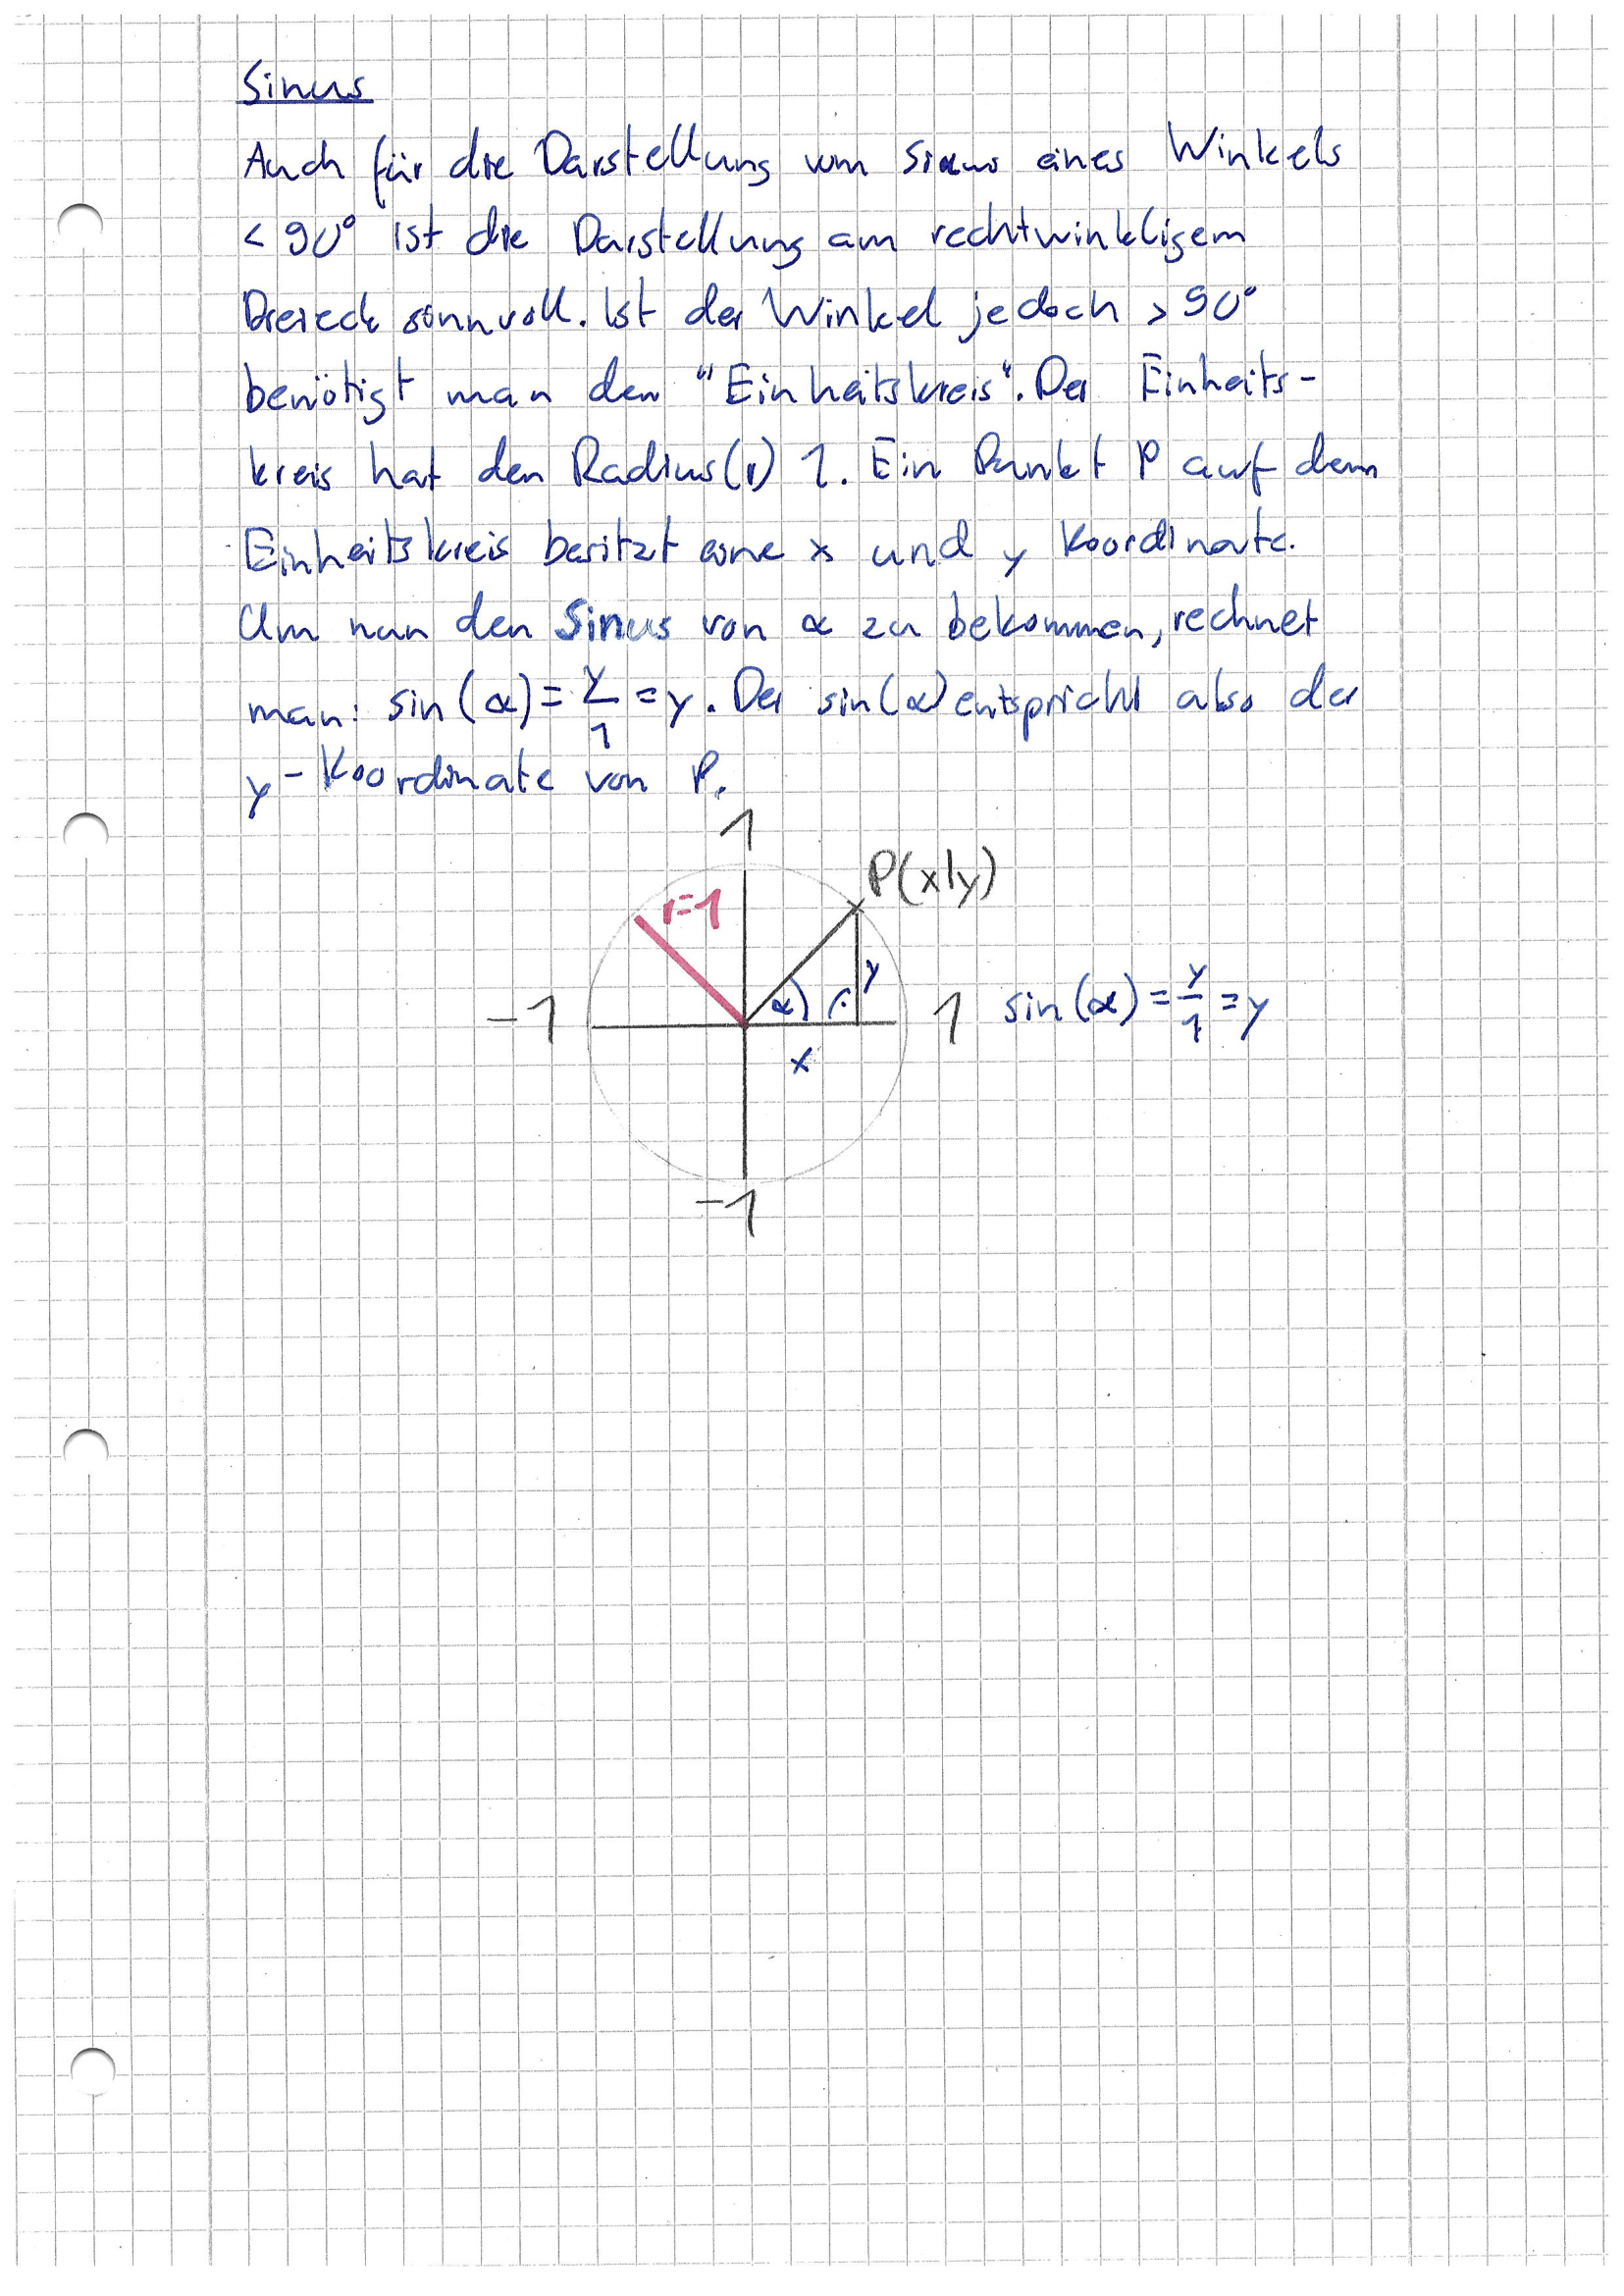 Sinus
Auch für die Darstellung vom Sinus eines Winkels
< 90° ist die Darstellung am rechtwinkligem
Dreieck sinnvoll. Ist der Winkel jedoch > 90°
benötigt man den "Einheitskreis". Der Einheits-
kreis hat den Radius(r) 1. Ein Punkt P auf dem
Einheitskreis besitzt eine x und y Koordinate.
Um nun den Sinus von α zu bekommen, rechnet
man: sin(α) = y/1 = y. Der sin(α) entspricht also der
y-Koordinate von P.
1
P(x|y)
r=1
y
-1 α 1 sin(α) = y/1 = y
x
-1